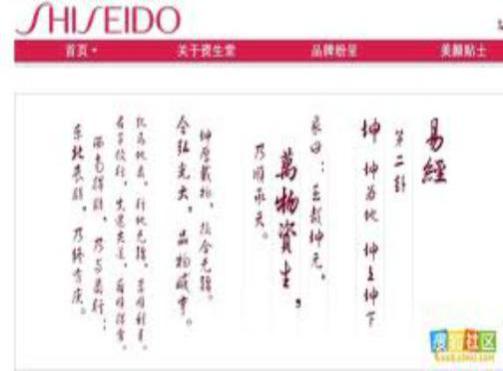 SHISEIDO
首页
关于资生堂
品牌纷呈
美颜贴士
易經
第二卦
坤 坤為地 坤上坤下
彖曰：至哉坤元。
萬物資生。
乃順承天。
坤厚載物，德合无疆。
含弘光大，品物咸亨。
牝馬地类，行地无疆，柔順利貞。
君子攸行，先迷失道，後順得常。
西南得朋，乃与类行；
东北丧朋，乃终有庆。
搜狐社区